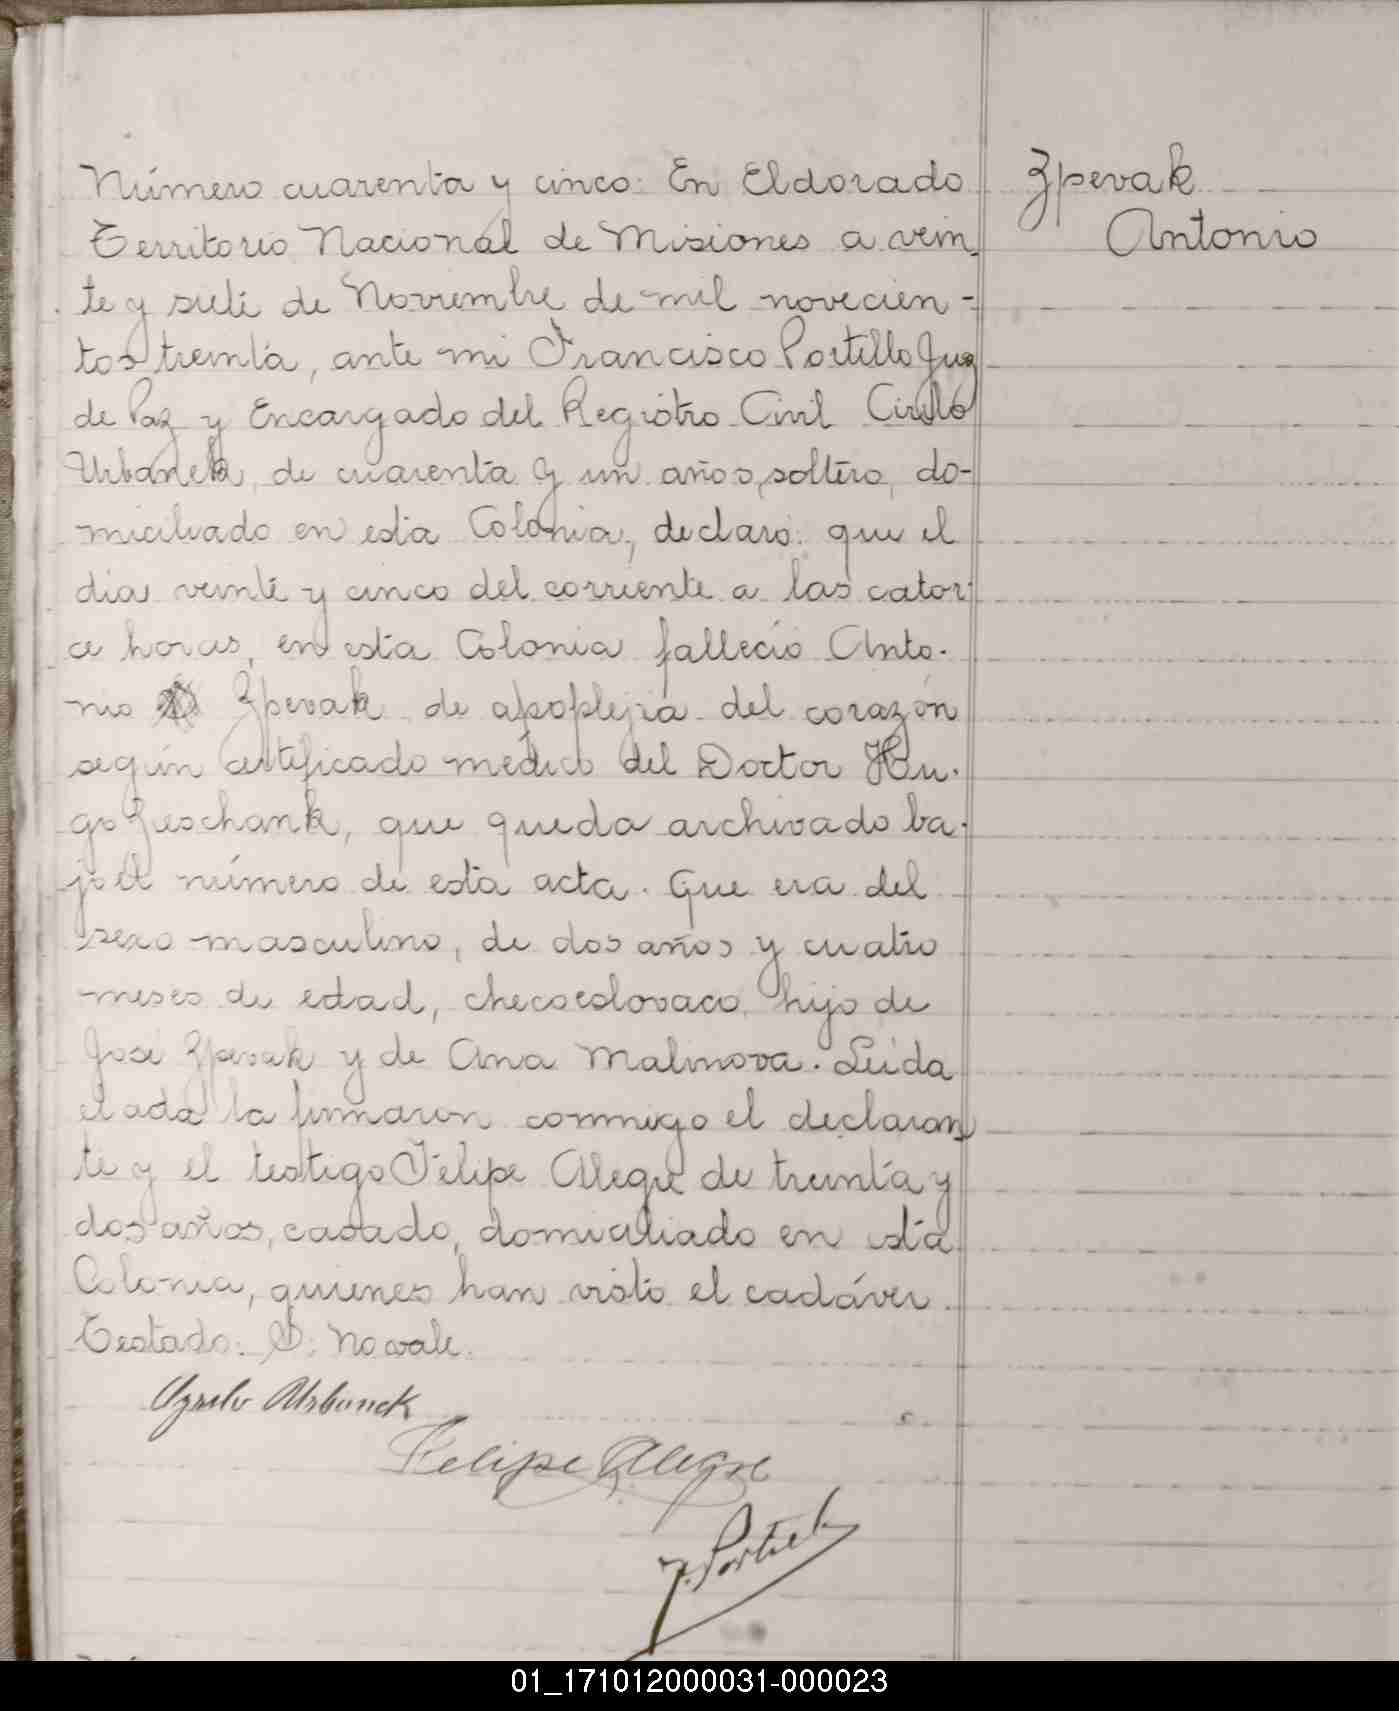 Número cuarenta y cinco: En Eldorado
Territorio Nacional de Misiones a vein-
te y siete de Noviembre de mil novecien-
tos treinta, ante mi Francisco Portillo Juez
de Paz y Encargado del Registro Civil Cirilo
Urbanek, de cuarenta y un años, soltero, do-
miciliado en esta Colonia, declaró: que el
dia veinte y cinco del corriente a las cator-
ce horas, en esta Colonia falleció Anto-
nio Zpevak de apoplejia del corazón
según certificado médico del Doctor Hu-
go Zieschank, que queda archivado ba-
jo el número de esta acta. Que era del
sexo masculino, de dos años y cuatro
meses de edad, checoeslovaco, hijo de
José Zpevak y de Ana Malinova. Leida
el acta la firmaron conmigo el declaran-
te y el testigo Felipe Alegre de treinta y
dos años, casado, domiciliado en esta
Colonia, quienes han visto el cadáver.
Testado: S: No vale.
Urbanek
Felipe Alegre
F. Portillo
Zpevak
Antonio
01_171012000031-000023